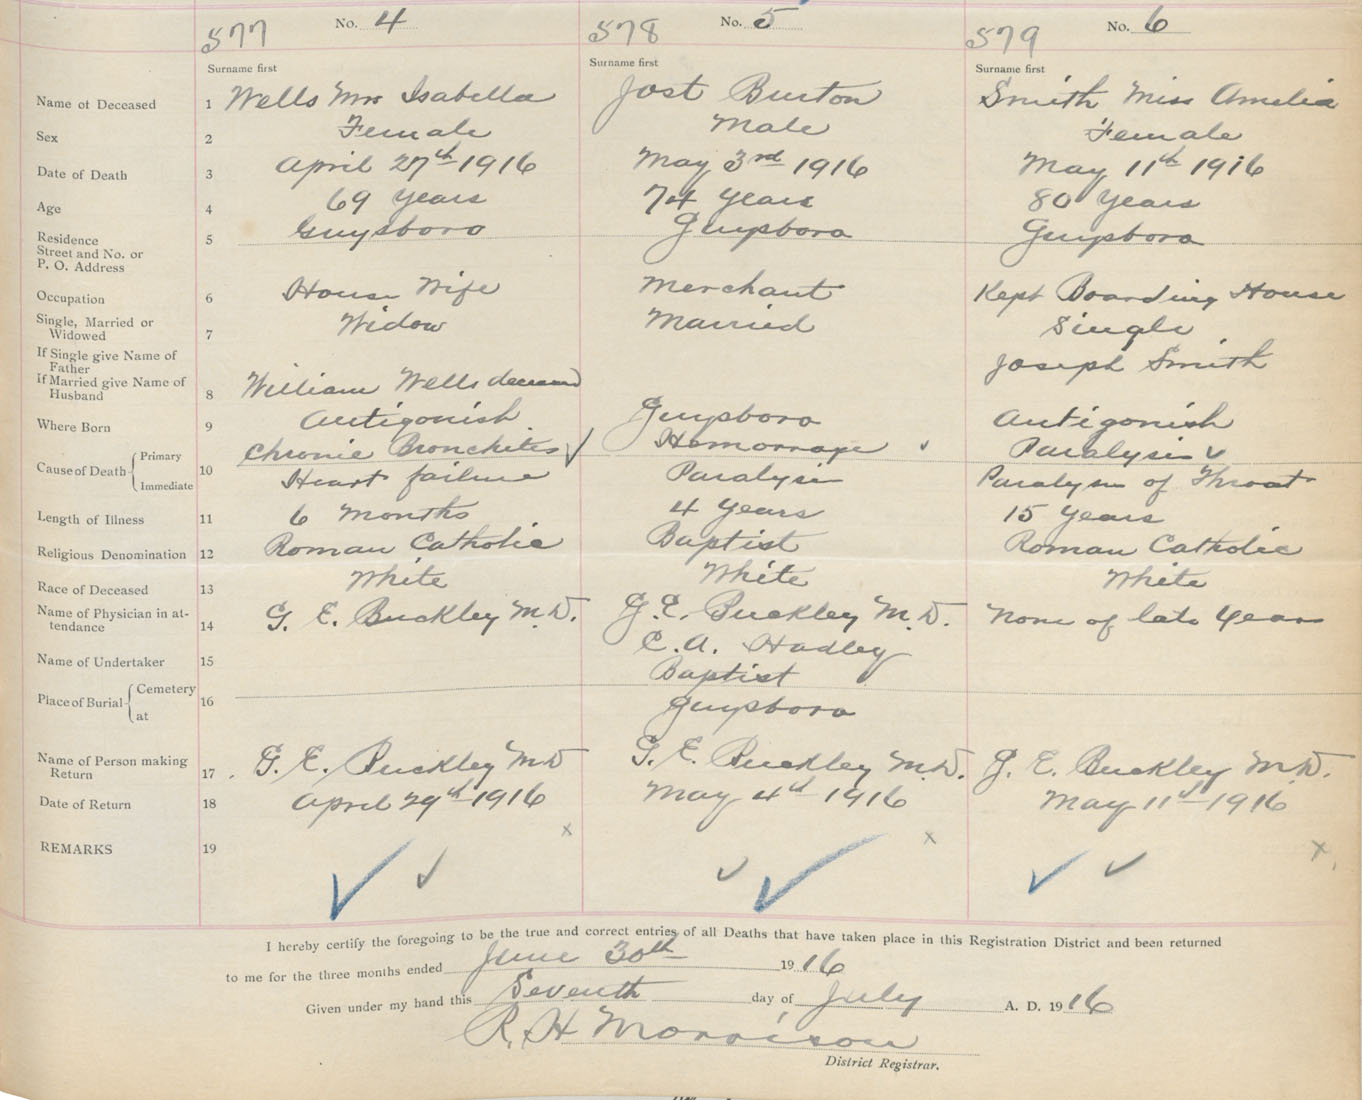 577 No. 4 578 No. 5 579 No. 6
Surname first Surname first Surname first
Name of Deceased 1 Wells Mrs Isabella Jost Burton Smith Miss Amelia
Sex 2 Female Male Female
Date of Death 3 April 27th 1916 May 3rd 1916 May 11th 1916
Age 4 69 years 74 years 80 years
Residence Street and No. or P. O. Address 5 Guysboro Guysboro Guysboro
Occupation 6 House Wife Merchant Kept Boarding House
Single, Married or Widowed 7 Widow Married Single
If Single give Name of Father Joseph Smith
If Married give Name of Husband 8 William Wells deceased
Where Born 9 Antigonish Guysboro Antigonish
Cause of Death Primary 10 Chronic Bronchites Hemorrage Paralysis
Immediate Heart failure Paralysis Paralysis of Throat
Length of Illness 11 6 Months 4 years 15 years
Religious Denomination 12 Roman Catholic Baptist Roman Catholic
Race of Deceased 13 White White White
Name of Physician in attendance 14 G. E. Buckley M.D. G. E. Buckley M.D. None of late years
Name of Undertaker 15 C. A. Hadley
Place of Burial Cemetery 16 Baptist
at Guysboro
Name of Person making Return 17 G. E. Buckley MD G. E. Buckley M.D. G. E. Buckley M.D.
Date of Return 18 April 29th 1916 May 4th 1916 May 11th 1916
REMARKS 19
I hereby certify the foregoing to be the true and correct entries of all Deaths that have taken place in this Registration District and been returned
to me for the three months ended June 30th 1916
Given under my hand this Seventh day of July A. D. 1916
R. H Morrison
District Registrar.